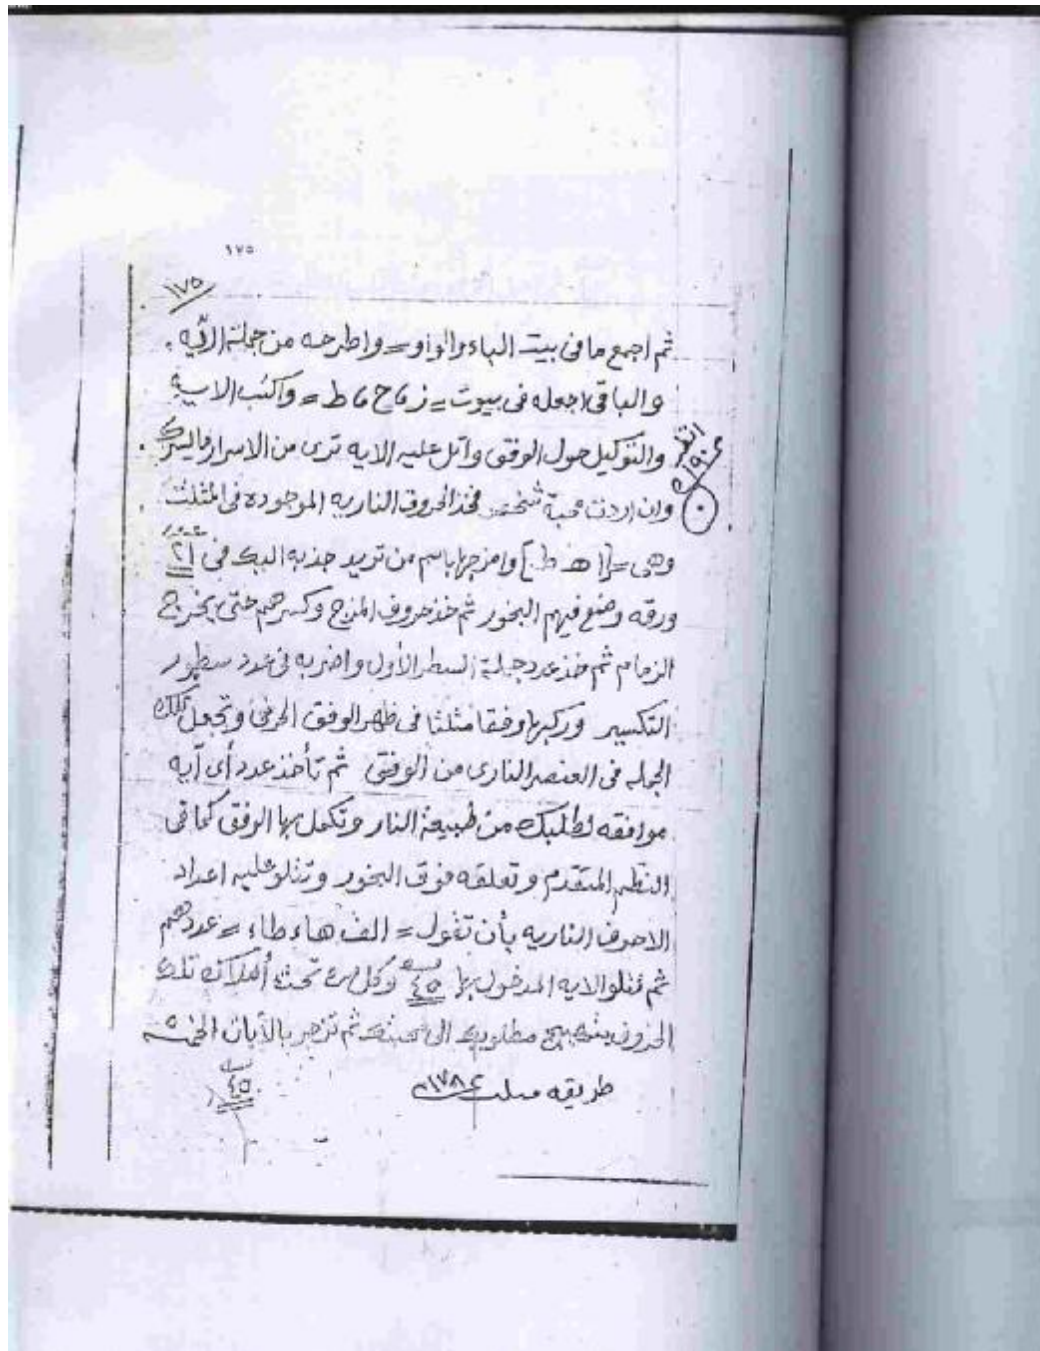 ١٧٥
١٧٥
ثم اجمع ما فى بيت الباء والواو = واطرحه من جملة الآيه .
والباقى اجعله فى بيوت = ز ، ح ، ط = واكتب الايه
انظر
والتوكيل حول الوفق واتل عليه الايه ترى من الاسرار ما يسرك .
وان اردت محبة شخص فخذ الحروف الناريه الموجوده فى المثلث
وهى = [ا ھ ط] وامزجها باسم من تريد جذبه اليك فى ٢١
ورقه وضع فيهم البخور ثم خذ حروف المزج وكسرهم حتى يخرج
الزمام ثم خذ عدد جملة السطر الأول واضربه فى عدد سطور
التكسير وركبها وفقا مثلثا فى ظهر الوفق الحرفى وتجعل تلك
الجمله فى العنصر النارى من الوفق ثم تأخذ عدد أى آيه
موافقه لطلبك من طبيعة النار وتكمل بها الوفق كما فى
النظم المتقدم وتعلقه فوق البخور وتتلو عليه اعداد
الاحرف الناريه بأن تقول = الف هاء طاء = عددهم
ثم تتلو الايه المدخول بها ٤٥ وكل مره تحث أملاك تلك
الحروف بتهييج مطلوبك الى محبتك ثم تزجر بالآيات الخمسه
طريقه ٤٥